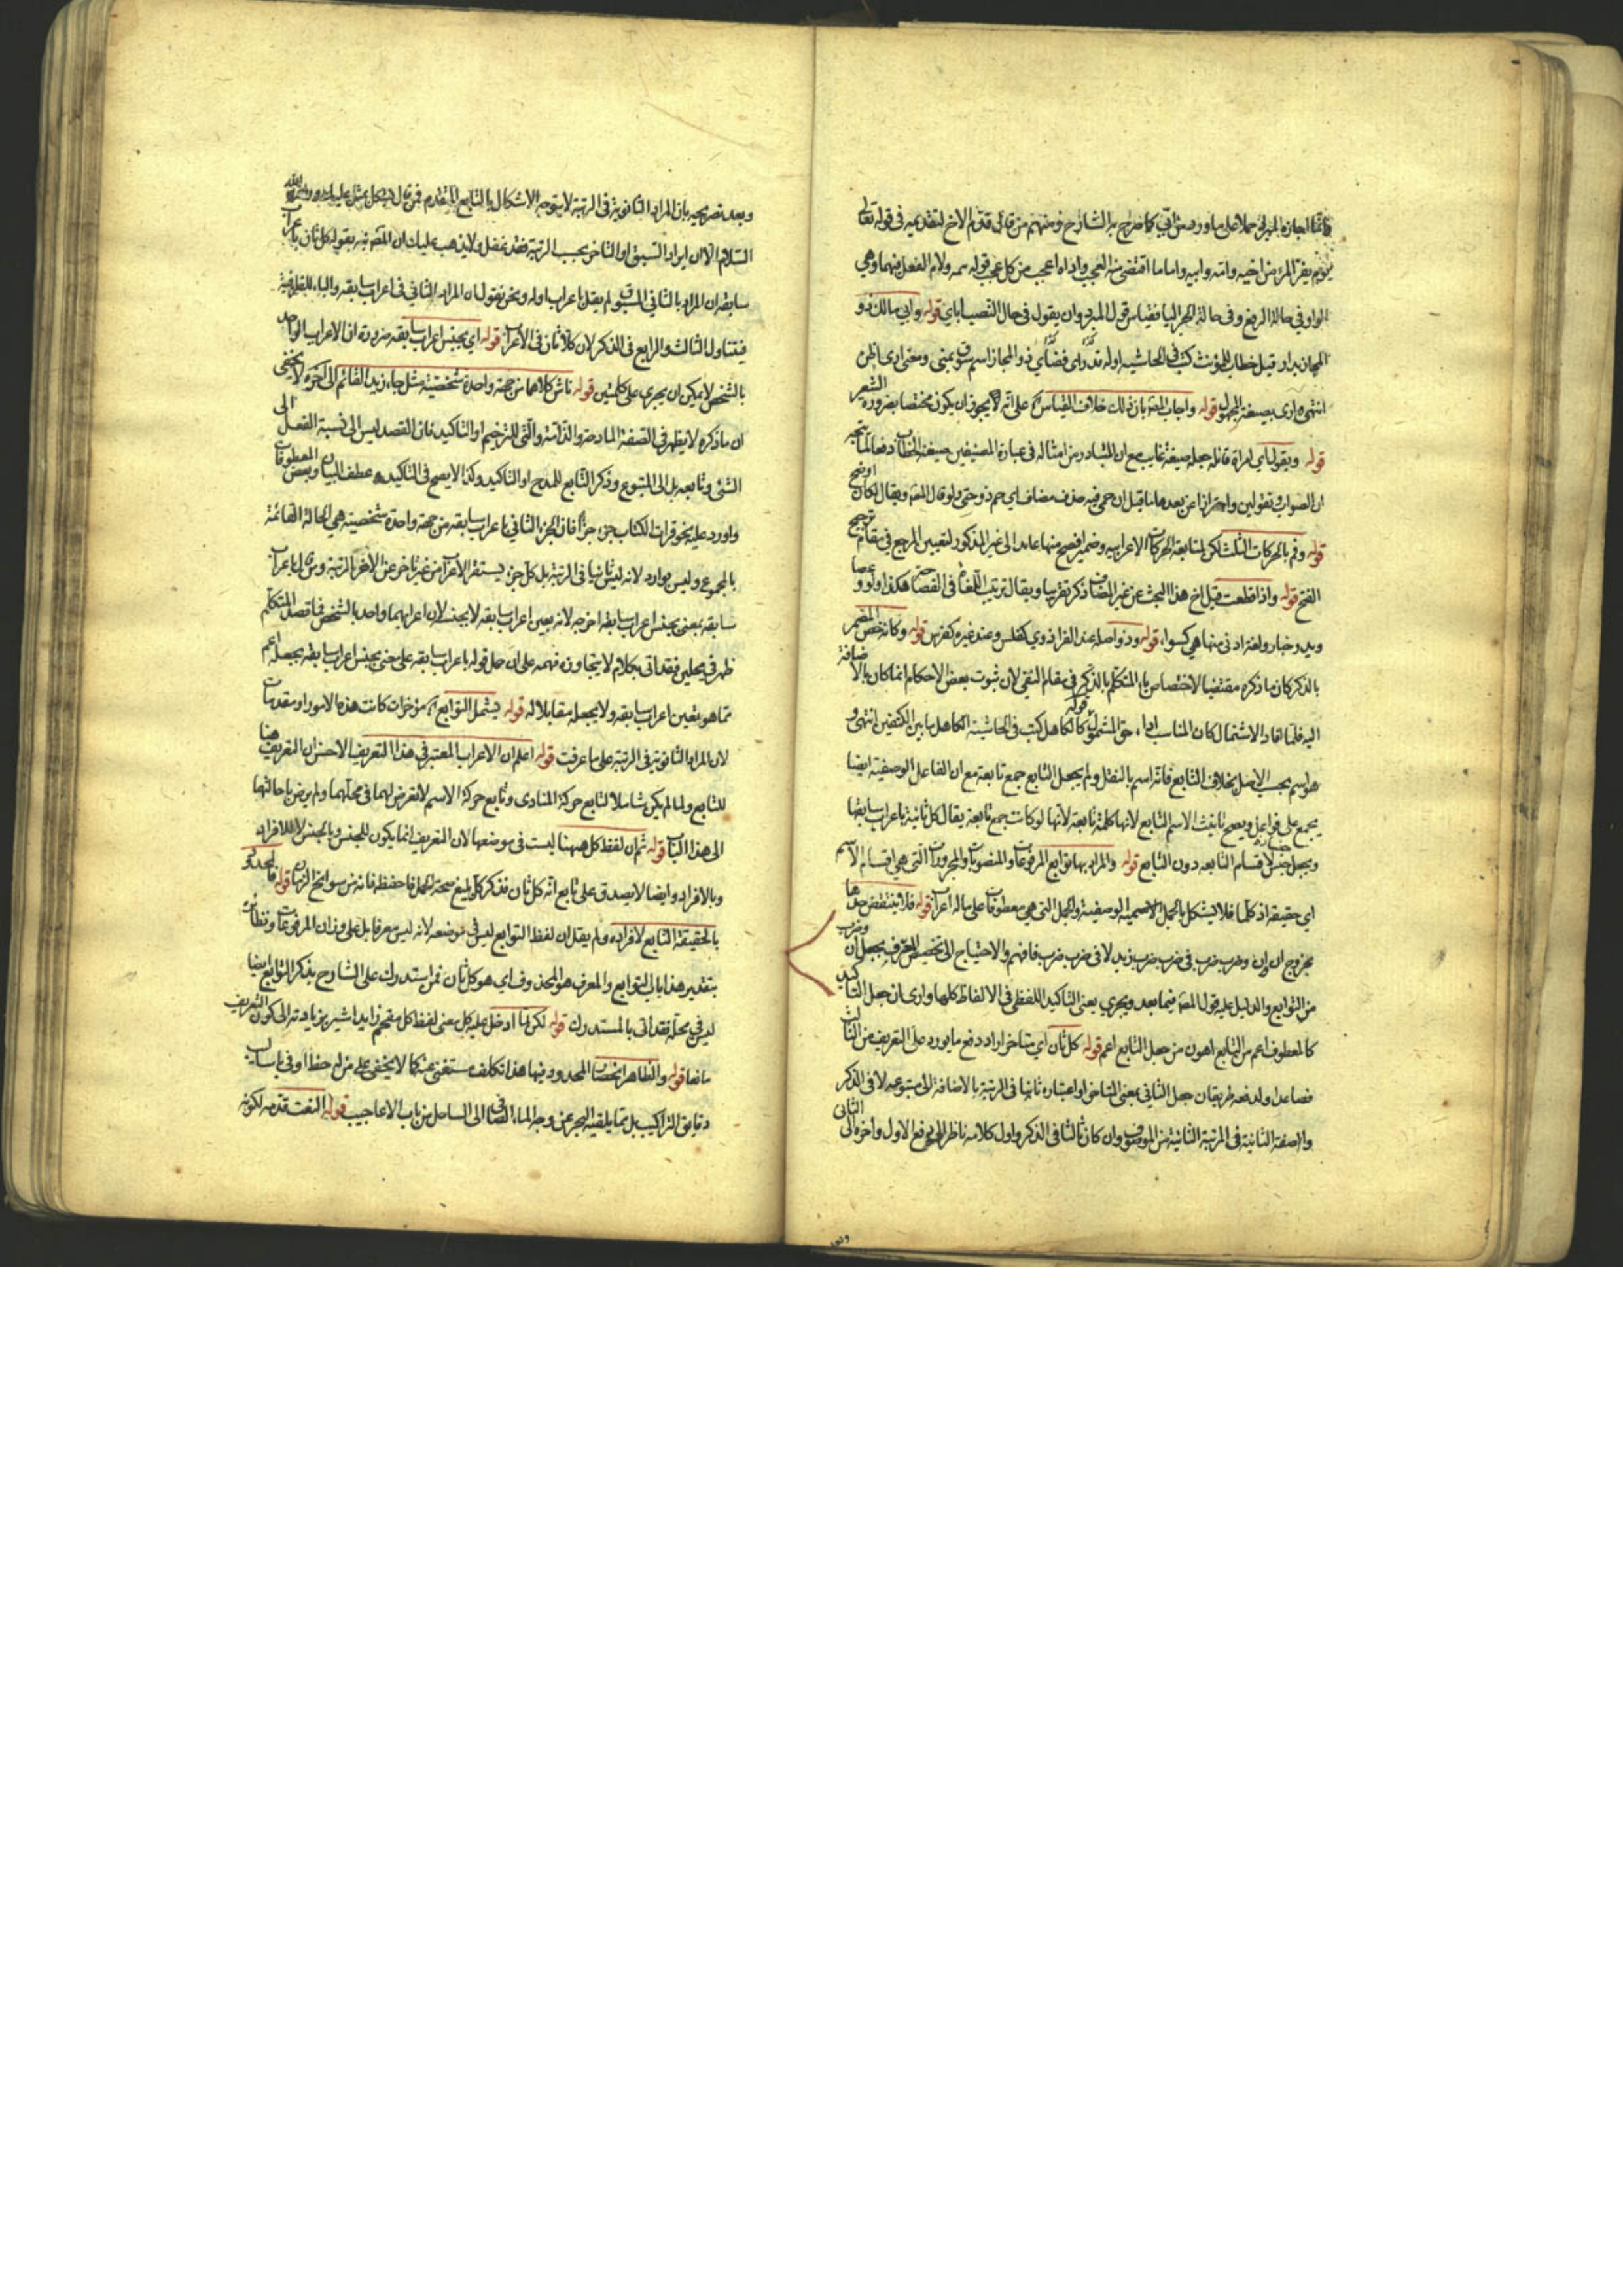 فانما اجازه المبرد حملا على ما ورد من ابي كما صرح به الشارح ومنهم من قال قدم الاخ لتقديمه في قوله تعالى
يوم يفر المرء من اخيه وامه وابيه واما ما اقتضى منه العجب واداه اعجب من كل عجب قوله ولام الفعل فيهما وهي
الواو في حالة الرفع وفي حالة الجر اليا فقياس قول المبرد ان يقول في حال النصب اباي قوله وابي مالك ذو
المجاز بدار قيل خطاب للمؤنث كتب في الحاشية اوله قدر ذو المجاز اسم سوق بمنى ومعنى ارى اظن
انتهى ارى بصيغة المجهول قوله واجاب المص بان ذلك خلاف القياس على انه لا يجوز ان يكون مختصا بضرورة الشعر
قوله وبقول اي امراة قائله جعله صيغة غايب مع ان المتبادر من امثاله في عبارة المصنفين صيغة الخطاب دفعا لما يتجه
ان الصواب وتقولين واحترازا عن بعد ما قيل ان حمي فيه حذف مضاف اي حم ذوجتي ولو قال المص ويقال لكان اوضح
قوله وفم بالحركات الثلث لكن لمتابعة الحركات الاعرابيه وضمير افصح منها عايد الى غير المذكور لتعيين المرجع في مقام ترجيح
الفتح قوله واذا قطعت قيل اخ هذا البحث عن غير المضاف ذكر تقريبا ويقال ترتيب اللغات في الفصاحة هكذا ولو وعصا
ويد وخبا ولغة ادنى منها هي كسوا، قوله ودو اصله عند الفرا ذوي كفلس وعند غيره كفرس قوله وكانه خص المضمر
بالذكر كان ما ذكره مقتضيا لاختصاص ياء المتكلم بالذكر في مقام النفي لان ثبوت بعض الاحكام انما كان بالاضافة
اليه فلما افاد الاشتمال كان المناسب اداء حق الشمول قوله كالكاهل كتب في الحاشية الكاهل ما بين الكتفين انتهى و
هو اسم بحسب الاصل بخلاف التابع فانه اسم بالنقل ولم يجعل التابع جمع تابعة مع ان الفاعل الوصفية ايضا
يجمع على فواعل ويصح تانيث الاسم التابع لانها كلمة تابعة لانها لو كانت جمع تابعة يقال كل ثانية باعراب سابقها
ويجعل جنس الاقسام التابعه دون التابع قوله والمراد بها توابع المرفوعات والمنصوبات والمجرورات التي هي اقسام الاسم
اي حقيقة او حكما فلا يشكل بالجمل الاسمية الوصفية والجمل التي هي معطوفات على ماله اعراب قوله فلا ينتقض حدها
بخروج ان وان وضرب ضرب في ضرب ضرب زيد لا في ضرب ضرب فافهم ولا احتياج الى تخصيص المعرف بجعل ان وضرب
من التوابع والدليل عليه قول المص فيما بعد ويجري يعني التاكيد اللفظي في الالفاظ كلها وارى ان جعل التاكيد
كالمعطوف اعم من التابع اهون من جعل التابع اعم قوله كل ثان اي متاخر اراد دفع ما يورد على التعريف من الثالث
فصاعدا ولدفعه طريقان جعل الثاني بمعنى المتاخر او اعتباره ثانيا في الرتبة بالاضافة الى متبوعه لا في الذكر
والصفة الثانية في المرتبة الثانية من الموصوف وان كان ثالثا في الذكر واول كلامه ناظر الى دفع الاول واخره الى الثاني
وبعد تصريحه بان المراد الثانوية في الرتبة لا يتوجه الاشكال بالتابع المتقدم فمن قال يشكل بمثل عليك ورحمة الله
السلام الا ان ايراد السبق او التاخر بحسب الرتبة فقد غفل ولا يذهب عليك ان المص نبه بقوله كل ثان باعراب
سابقه ان المراد بالثاني المسبوق ولم يقل باعراب اوله ونحن نقول ان المراد الثاني في اعراب سابقه والباء للظرفية
فيتناول الثالث والرابع في الذكر لان كلا ثان في الاعراب قوله اي بجنس اعراب سابقه ضرورة ان الاعراب الواحد
بالشخص لا يمكن ان يجري على كلمتين قوله ناش كلاهما من جهة واحدة شخصية مثل جاء زيد القائم الى اخره لا يخفى
ان ما ذكره لا يظهر في الصفة المادحة والذامة والتي للترحيم او التاكيد فان القصد ليس الى نسبة الفعل الى
الشئ وتابعه بل الى المتبوع وذكر التابع للمدح او التاكيد وكذا لا يصح في التاكيد وعطف البيان وبعض المعطوفات
واورد عليه نحو قرات الكتاب جزء جزأ فان الجزء الثاني باعراب سابقه من جهة واحدة شخصية هي الحالة القائمة
بالمجموع وليس بوارد لانه ليس ثانيا في الرتبة بل كل جزء يستقر الاعراب من غير تاخر عن الاخر بالمرتبة
سابقه بمعنى بجنس اعراب سابقه اخرجه لانه بعين اعراب سابقه لا بجنسه لان اعرابهما واحد بالشخص فاقصد المتكلم
ظهر في محلين فقد اتى بكلام لا يتجاوزه فهمه على ان حمل قوله باعراب سابقه على معنى بجنس اعراب سابقه يجعله اعم
مما هو بعين اعراب سابقه ولا يجعله مقابلا له قوله يشمل التوابع مؤخرات كانت هذه الامور او مقدمات
لان المراد الثانوية في الرتبة على ما عرفت قوله اعلم ان الاعراب المعتبر في هذا التعريف الاحسن ان التعريف هنا
للتابع ولما لم يكن شاملا لتابع حركة المنادى وتابع حركة الاسم لا تعرض لهما في محلهما ولم يرض باحالتهما
الى هذا الباب قوله ثم ان لفظ كل ههنا ليست في موضعها لان التعريف انما يكون للجنس وبالجنس لا للافراد
وبالافراد وايضا لا يصدق على تابع انه كل ثان فذكر كل يمنع صحة الحمل فاحفظه فانه من سوانح الزمان قوله فالمحدود
بالحقيقة التابع لا افراده ولم يقل ان لفظ التوابع ليس في موضعه لانه ليس معرفا بل على وزان المرفوعات ونظائره
بتقدير هذا باب التوابع والمعرف هو المحذوف اي هو كل ثان فمن استدرك على الشارح بذكر التوابع ايضا
ليس في محله فقد اتى بالمستدرك قوله لكن لما ادخل عليه كل يعني لفظ كل مقحم زايد اشير بزيادته الى كون التعريف
مانعا قوله والظاهر انحصار المحدود فيها هذا تكلف مستغنى عنه كما لا يخفى على من له حظ اوفى باساليب
دقايق التراكيب بل مما يلقيه البحر عن وجه الماء الصافي الى الساحل من باب الاعاجيب قوله النعت قدمه لكونه